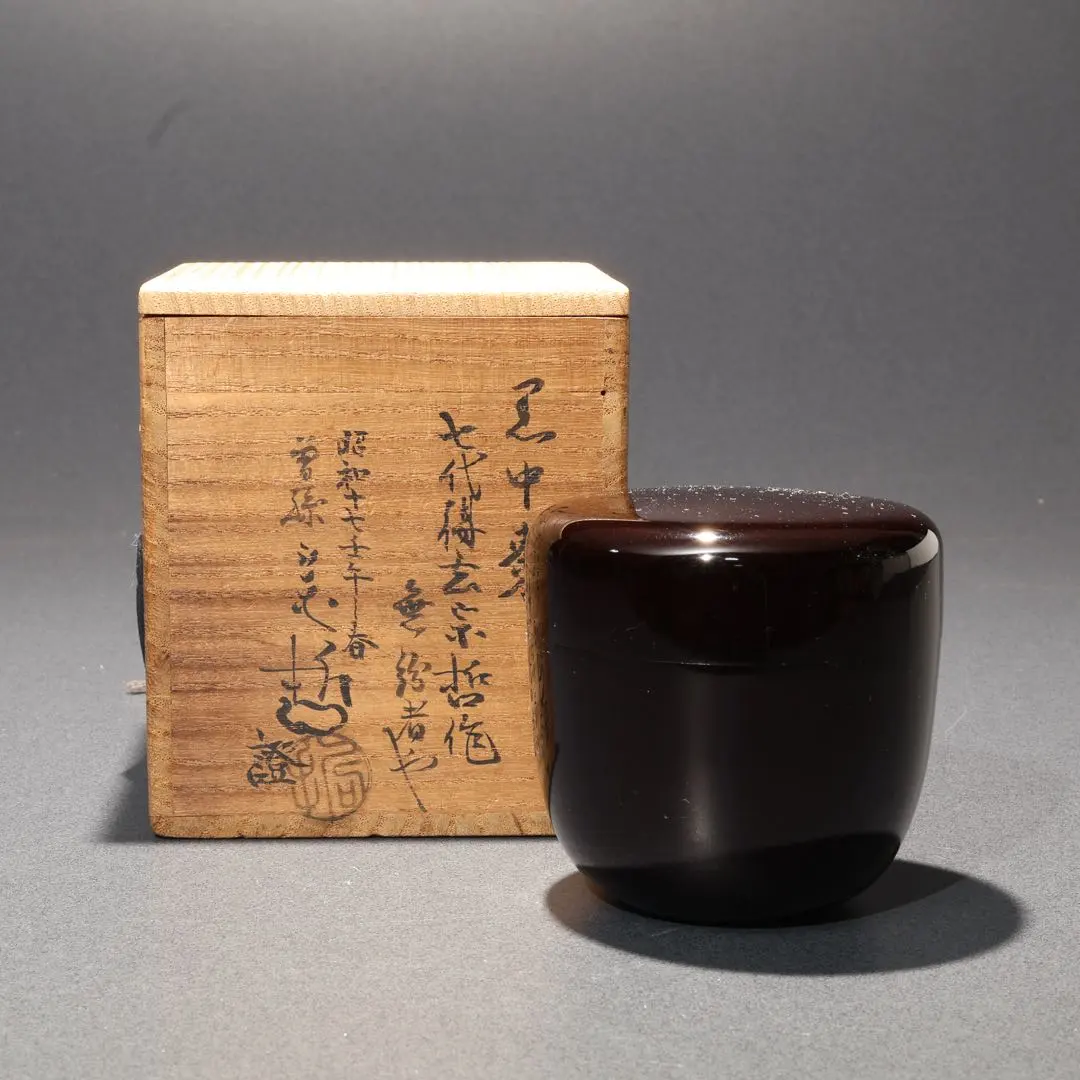 黒中棗
七代得玄宗哲作
無紛者也
昭和十七壬午春
曽孫 哲 證